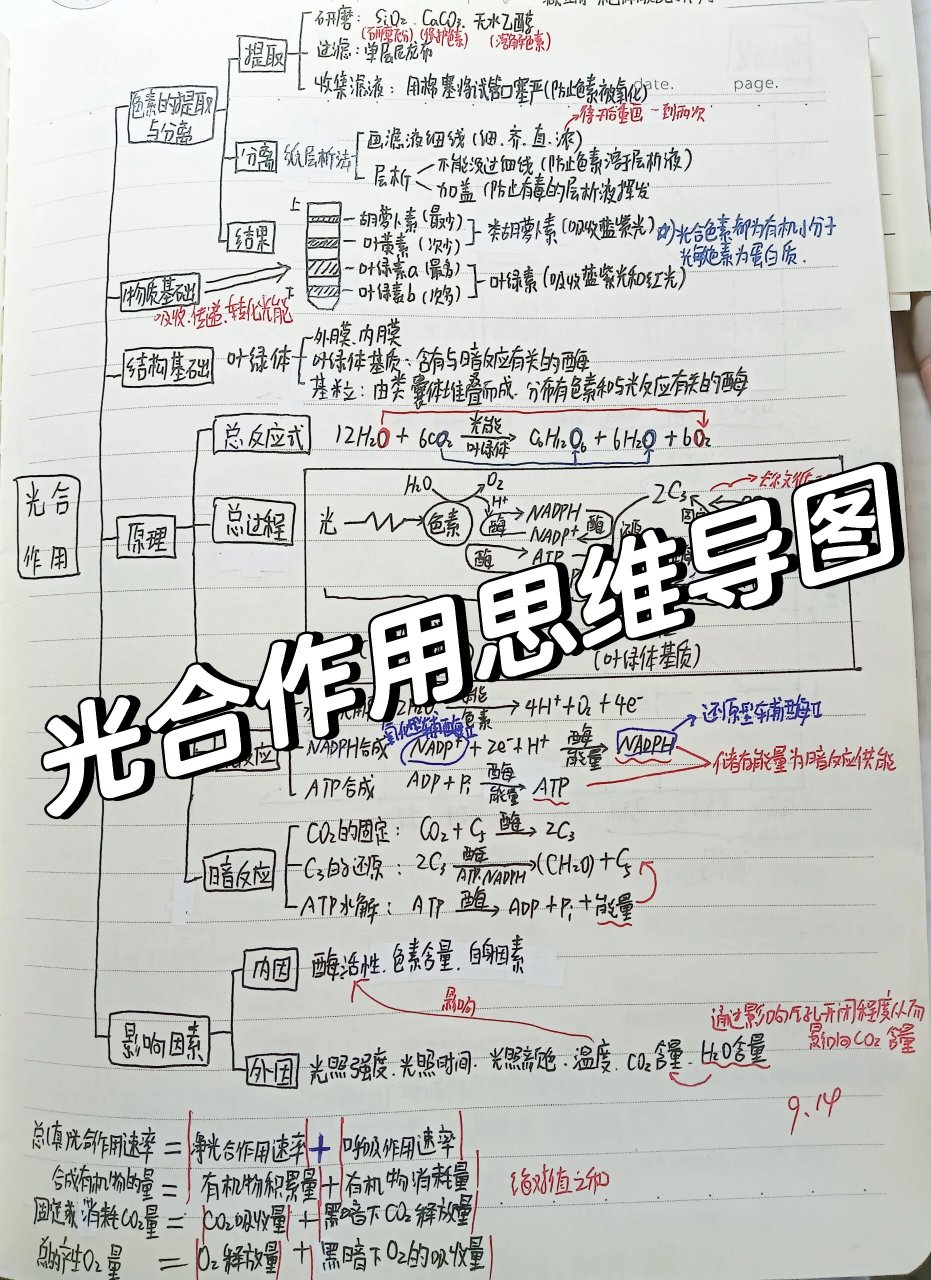 提取
研磨：SiO2、CaCO3、无水乙醇
(研磨充分) (保护色素) (溶解色素)
过滤：单层尼龙布
收集滤液：用棉塞将试管口塞严(防止色素被氧化)
date. page.
色素的提取与分离
待干后重画一到两次
分离 纸层析法
画滤液细线(细、齐、直、浓)
层析
不能没过细线(防止色素溶于层析液)
加盖(防止有毒的层析液挥发
结果
上
胡萝卜素(最少)
叶黄素(次少)
类胡萝卜素(吸收蓝紫光)
光合色素都为有机小分子
光敏色素为蛋白质.
叶绿素a(最多)
叶绿素b(次多)
叶绿素(吸收蓝紫光和红光)
下
物质基础
吸收、传递、转化光能
结构基础 叶绿体
外膜、内膜
叶绿体基质：含有与暗反应有关的酶
基粒：由类囊体堆叠而成、分布有色素和与光反应有关的酶
总反应式
12H2O + 6CO2 光能 叶绿体 → C6H12O6 + 6H2O + 6O2
光合作用
原理
总过程
H2O O2
光 色素
H+
酶 NADPH
NADP+ 酶
酶 ATP
还原
2C3
固定
光合作用思维导图
(叶绿体基质)
色素 → 4H+ + O2 + 4e-
氧化型辅酶Ⅱ
还原型辅酶Ⅱ
反应
NADPH合成 NADP+ + 2e- + H+ 酶 能量 → NADPH
储有能量为暗反应供能
ATP合成 ADP + Pi 酶 能量 → ATP
暗反应
CO2的固定：CO2 + C5 酶→ 2C3
C3的还原：2C3 酶 ATP、NADPH → (CH2O) + C5
ATP水解：ATP 酶→ ADP + Pi + 能量
内因 酶活性、色素含量、自身因素
影响
影响因素
通过影响气孔开闭程度从而
影响CO2含量
外因 光照强度、光照时间、光照面积、温度、CO2含量、H2O含量
9.14
总(真)光合作用速率 = |净光合作用速率| + |呼吸作用速率|
合成有机物的量 = |有机物积累量| + |有机物消耗量|
绝对值之和
固定或消耗CO2量 = |CO2吸收量| + |黑暗下CO2释放量|
总的产生O2量 = |O2释放量| + |黑暗下O2的吸收量|